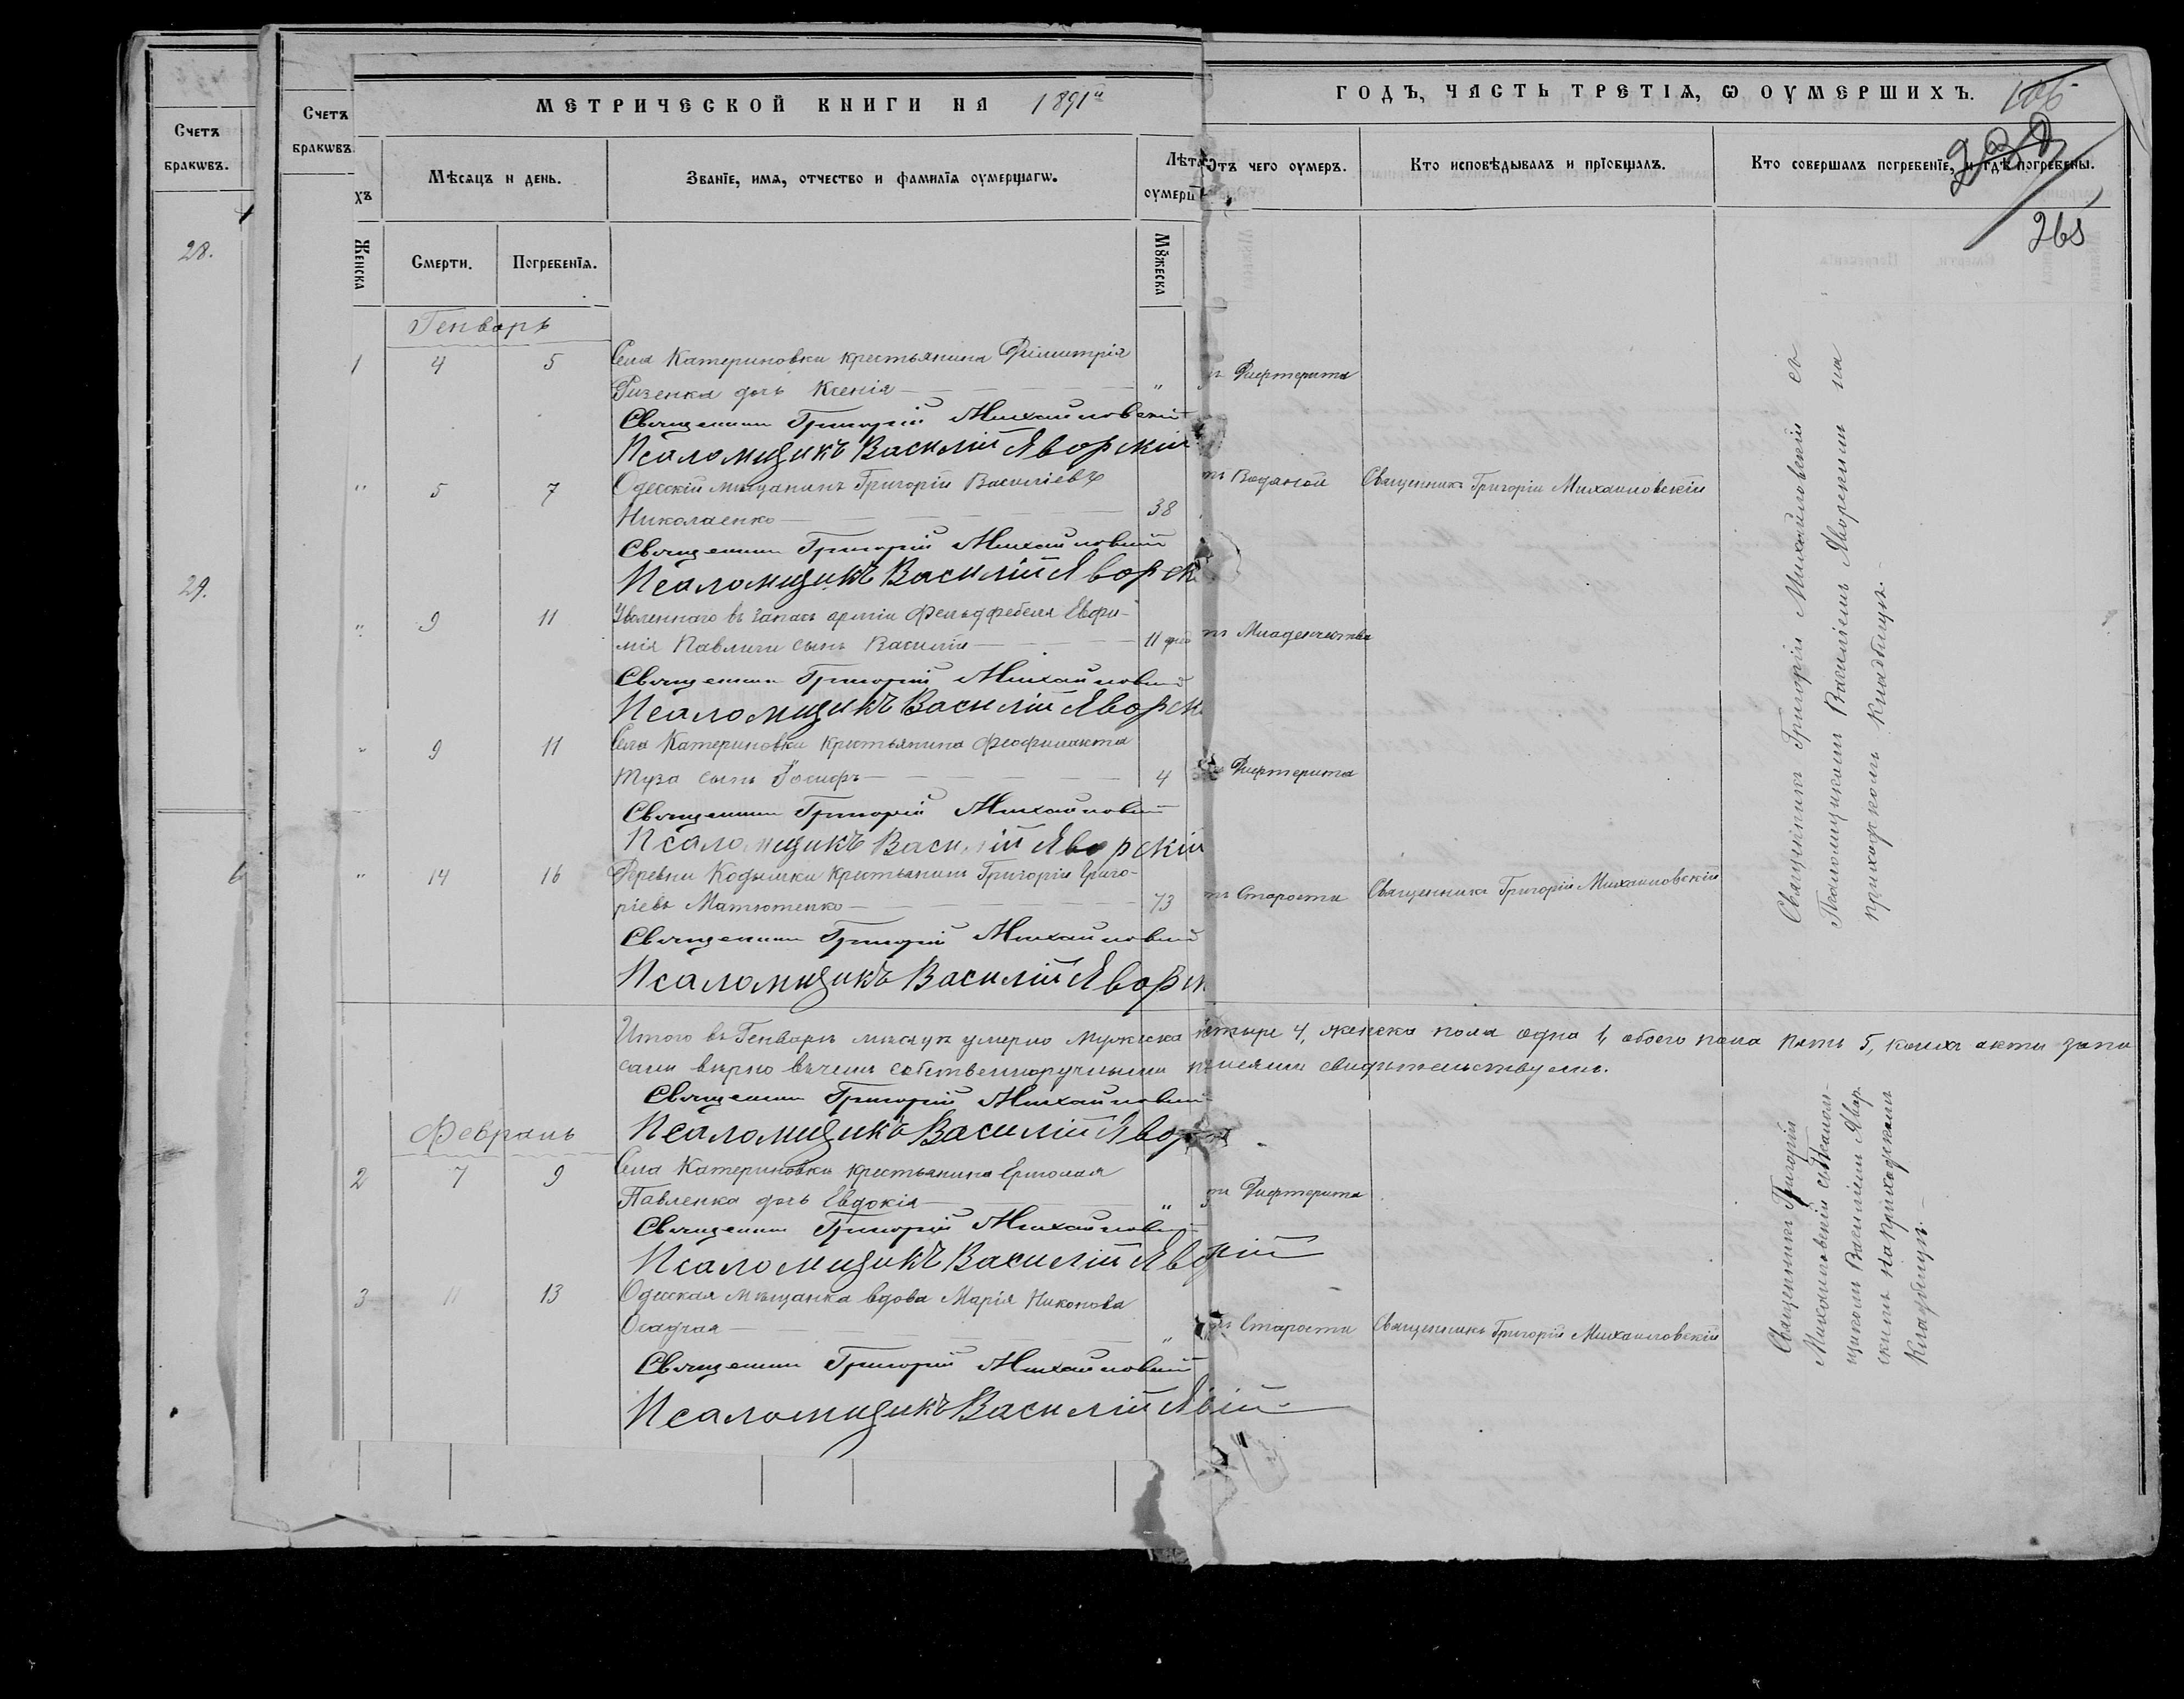 Счетъ
бракѡвъ.
28.
29.
Счетъ
бракѡвъ
6
МЕТРИЧЕСКОЙ КНИГИ НА 1891й
ГОДЪ, ЧАСТЬ ТРЕТІѦ, Ѡ ОУМЕРШИХЪ.
265
хъ
Мѣсяцъ и день.
Званіе, имѧ, отчество и фамиліѧ оумершагѡ.
Лѣта
оумерш
Отъ чего оумеръ.
Кто исповѣдывалъ и пріобщалъ.
Кто совершалъ погребеніе, и гдѣ погребены.
Женска
Смерти.
Погребеніѧ.
Мꙋжеска
Генварь
1 4 5 Села Катериновки крестьянина Димитрія
Ризенка дочь Ксенія — " тъ Дифтерита
Священникъ Григорій Михайловскій
Псаломщикъ Василій Яворскій
" 5 7 Одесскій мѣщанинъ Григорій Васильевъ
Николаенко — 38 тъ Водяной Священникъ Григорій Михайловскій
Священникъ Григорій Михайловскій
Псаломщикъ Василій Яворск
" 9 11 Уволеннаго въ запасъ арміи Фельдфебеля Евфи-
мія Павлиги сынъ Василій — 11 дне тъ Младенчества
Священникъ Григорій Михайловскій
Псаломщикъ Василій Яворск
" 9 11 Села Катериновки крестьянина Феофилакта
Туза сынъ Іосифъ — 4 Дифтерита
Священникъ Григорій Михайловскій
Псаломщикъ Василій Яворскій
" 14 16 Деревни Кодымки крестьянинъ Григорій Григо-
ріевъ Матютенко — 73 тъ Старости Священникъ Григорій Михайловскій
Священникъ Григорій Михайловскій
Псаломщикъ Василій Яворск
Священникъ Григорій Михайловскій съ
Псаломщикомъ Василіемъ Яворскимъ на
приходскомъ кладбищѣ.
Итого въ Генварѣ мѣсяцѣ умерло мужеска четыре 4, женска пола одна 1, обоего пола пять 5, коихъ акты запи
сали вѣрно въ чемъ собственноручными свидѣтельствуемъ.
Священникъ Григорій Михайловскій
Псаломщикъ Василій Явор
Февраль
2 7 9 Села Катериновки крестьянина Ермолая
Павленка дочь Евдокія — " тъ Дифтерита
Священникъ Григорій Михайловскій
Псаломщикъ Василій Яво кій
3 11 13 Одесская мѣщанка вдова Марія Никонова
Осадчая — " тъ Старости Священникъ Григорій Михайловскій
Священникъ Григорій Михайловскій
Псаломщикъ Василій Я кій
Священникъ Григорій
Михайловскій съ Псалом-
щикомъ Василіемъ Явор
скимъ на приходскомъ
кладбищѣ.